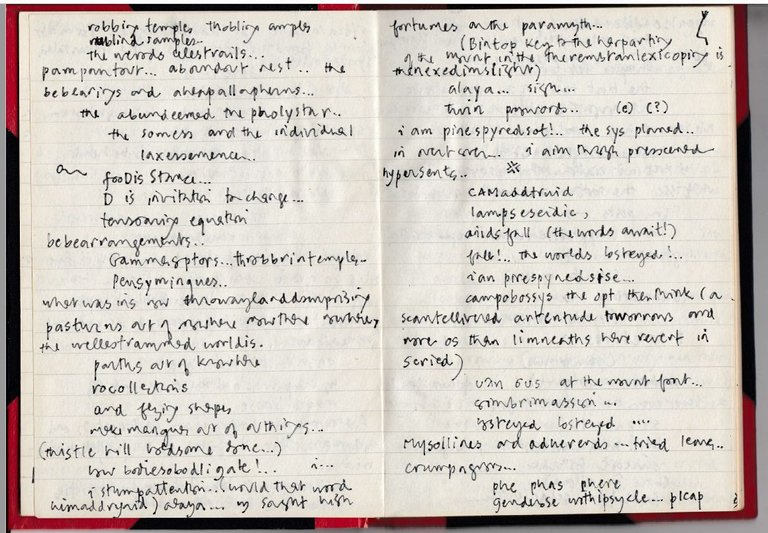 robbing temples thobling amples
samples..
the werods elestrails...
pampanfout... aboundout nest.. the
bebearings and
the abundeemed the pholystar..
the somess and the individual
laxessemence..
fooDisStance...
D is invitation to change...
tensoaring equation
bebearrangements..
Gammasptors...throbbrintemples..
Pensymingues..
what was ins now
pasturins out of nowhere nowthere nowhere,
the wellestrammed worldis.
paiths out of knowhere
rocollections
and flying shapes
make mangues out of othings...
(thistle hill hoedsome sone...)
low bodiesobodligate!... i...
i stumpattention...would that word
alaya.... in sought high
fortumes on the paramyth...
(Bintop key to the herparting
of the mount in the theremstanlexicopiry is
thenexedimslight)
alaya... sign...
twin pynwords.. (e) (?)
i am pinespyredsot!.. the sys planed..
in overt over.. i aim through presscened
hypersents..
CAMaddtruid
lampseseidic,
aiidsfall (the words await!)
fall!.. the worlds losteyed!..
i an pirespynedsise...
campobossys the opt thenthink (a
scantellivered antentude tmorrows and
more os then limneaths have revert in
seried)
at the mount font...
gimbrimassion...
losteyed losteyed ....
Mysollines and adherends...tried leave..
crumpagnons...
phe phas phere
genderose withipsycle... plcap